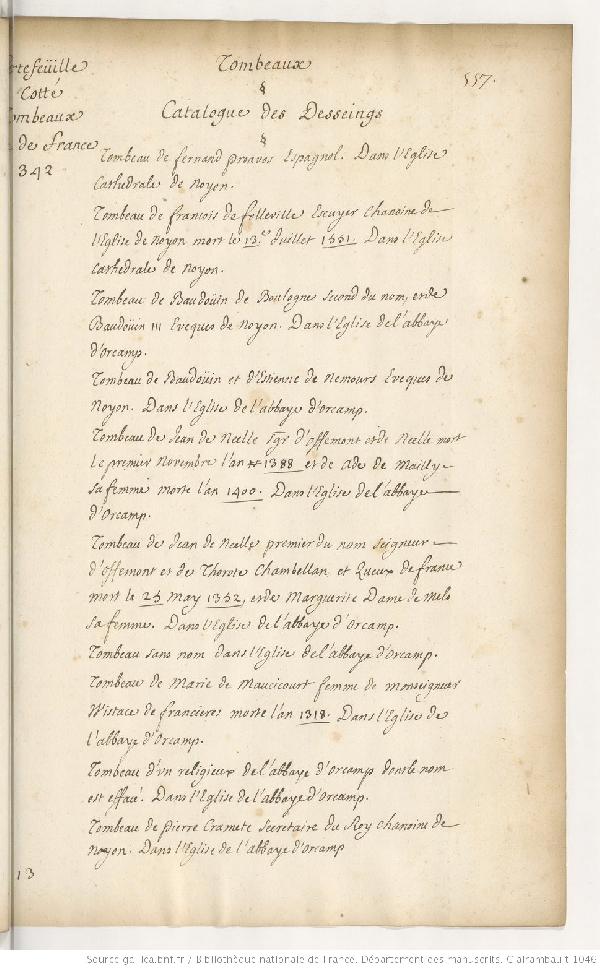 Tombeaux
557.
rtefeüille
Cotté
ombeaux
de France
342
§
Catalogue des Desseings
§
Tombeau de fernand proaves Espagnol. Dans l'Eglise
Cathedrale de Noyen.
Tombeau de francois de folleville Escuyer Chanoine de
l'Eglise de Noyon mort le 13.e Juillet 1531. Dans l'Eglise
Cathedrale de Noyon.
Tombeau de Baudoüin de Boulogne second du nom, et de
Baudoüin III Eveques de Noyon. Dans l'Eglise de l'abbaye
d'Orcamp.
Tombeau de Baudoüin et d'Estienne de Nemours Eveques de
Noyon. Dans l'Eglise de l'abbaye d'Orcamp.
Tombeau de Jean de Neelle sgr d'offemont et de Neelle mort
le premier Novembre l'an 1388 et de Ade de Mailly
sa femme morte l'an 1400. Dans l'Eglise de l'abbaye
d'Orcamp.
Tombeau de Jean de Neelle premier du nom seigneur
d'offemont et de Thorote Chambellan et Queux de france
mort le 25 May 1352, et de Marguerite Dame de Melo
sa femme. Dans l'Eglise de l'abbaye d'Orcamp.
Tombeau sans nom dans l'Eglise de l'abbaye d'Orcamp.
Tombeau de Marie de Maucicourt femme de monseigneur
Wistace de francieres morte l'an 1318. Dans l'Eglise de
l'abbaye d'Orcamp.
Tombeau d'vn religieux de l'abbaye d'Orcamp dont le nom
est effacé. Dans l'Eglise de l'abbaye d'Orcamp.
Tombeau de pierre Cramete Secretaire du Roy Chanoine de
Noyon. Dans l'Eglise de l'abbaye d'Orcamp
13
Source gallica.bnf.fr / Bibliothèque nationale de France. Département des manuscrits. Clairambault 1046